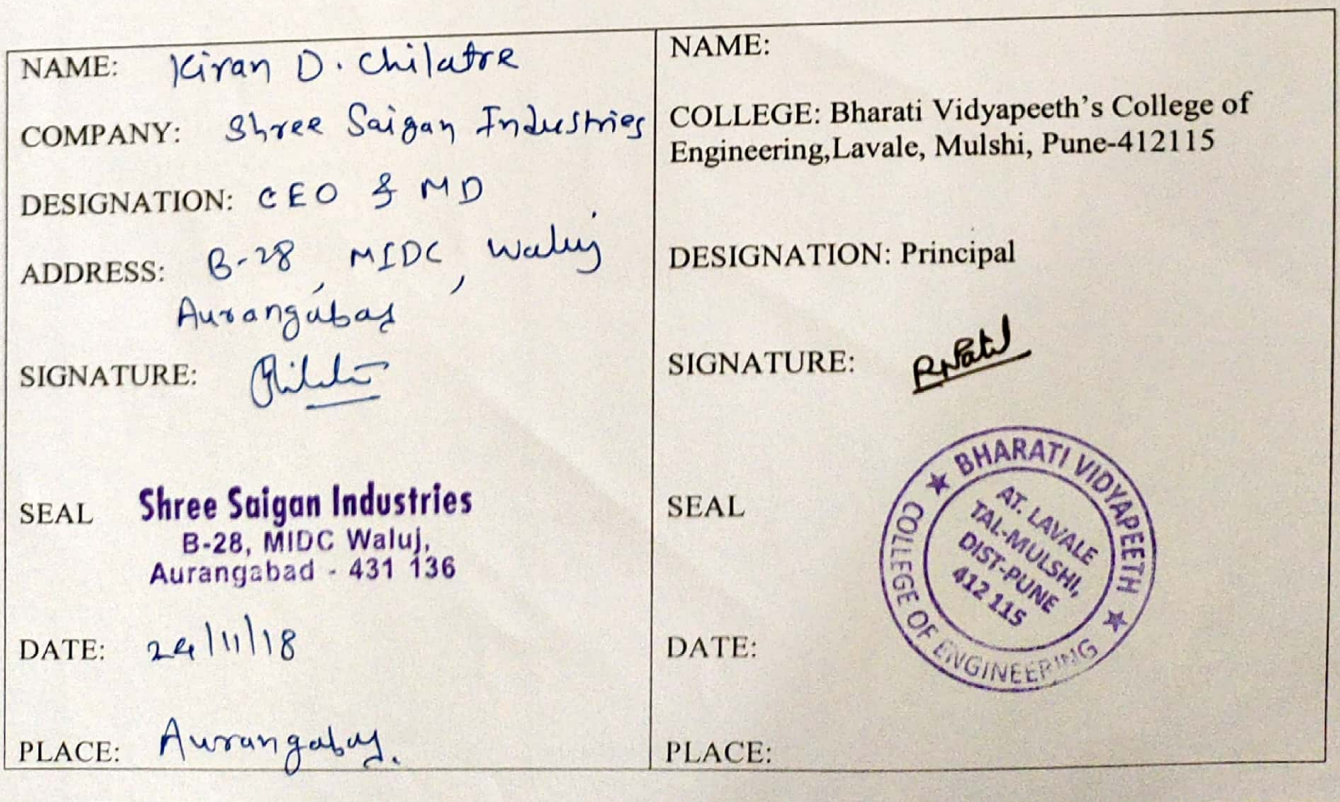 NAME: Kiran D. Chilatre
COMPANY: Shree Saigan Industries
DESIGNATION: CEO & MD
ADDRESS: B-28, MIDC, Waluj
Aurangabad
SIGNATURE:
SEAL Shree Saigan Industries
B-28, MIDC Waluj,
Aurangabad - 431 136
DATE: 24/11/18
PLACE: Aurangabad.
NAME:
COLLEGE: Bharati Vidyapeeth's College of
Engineering,Lavale, Mulshi, Pune-412115
DESIGNATION: Principal
SIGNATURE: RNPatil
SEAL
★ BHARATI VIDYAPEETH ★
COLLEGE OF ENGINEERING
AT. LAVALE
TAL-MULSHI,
DIST-PUNE
412 115
DATE:
PLACE: